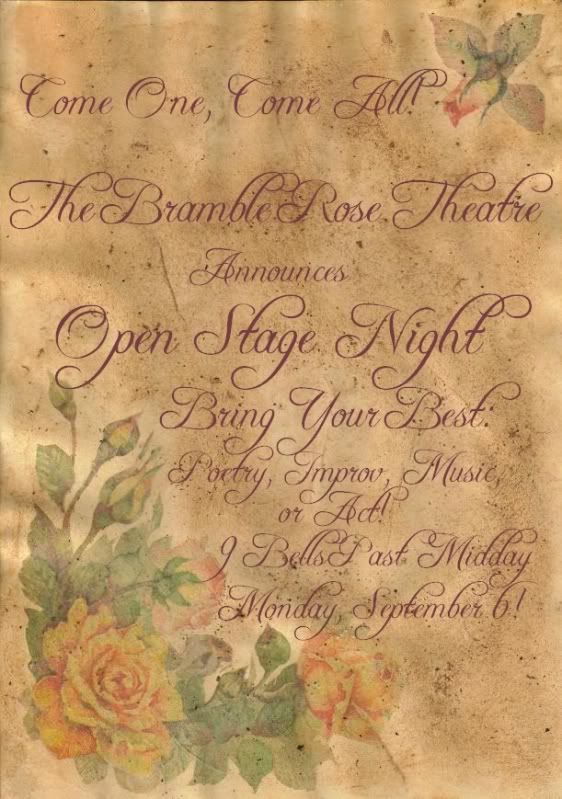 Come One, Come All!
The Bramble Rose Theatre
Announces
Open Stage Night
Bring Your Best:
Poetry, Improv, Music,
or Act!
9 Bells Past Midday
Monday, September 6!